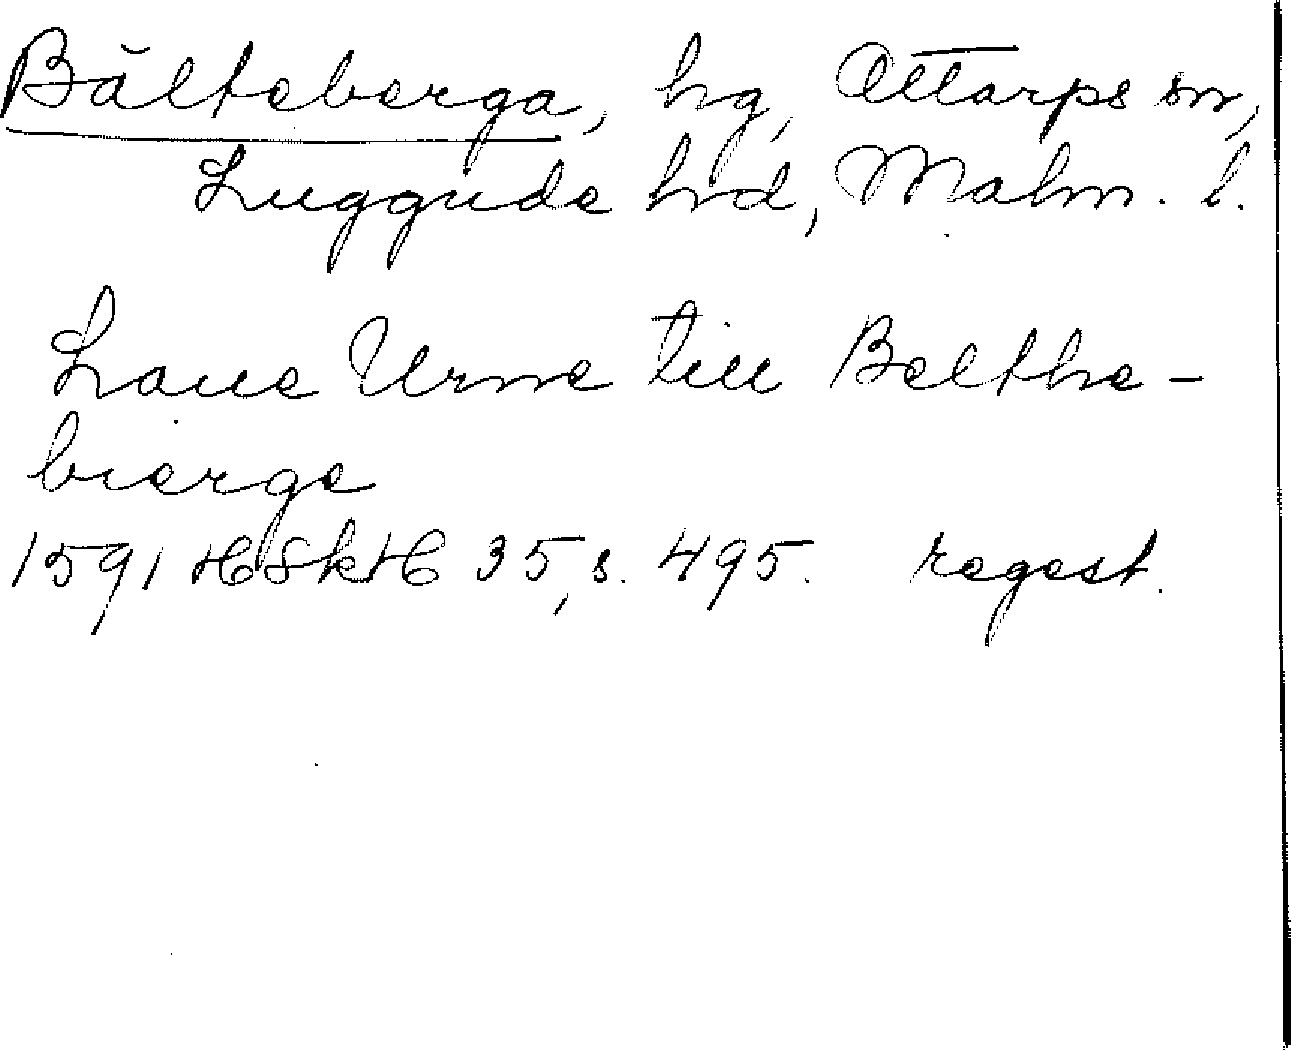 Bälteberga, hg, Ottarps sn,
Luggude hd, Malm. l.
Laue Urne till Belthe-
bierge
1591 HSkH 35, s. 495. regest.